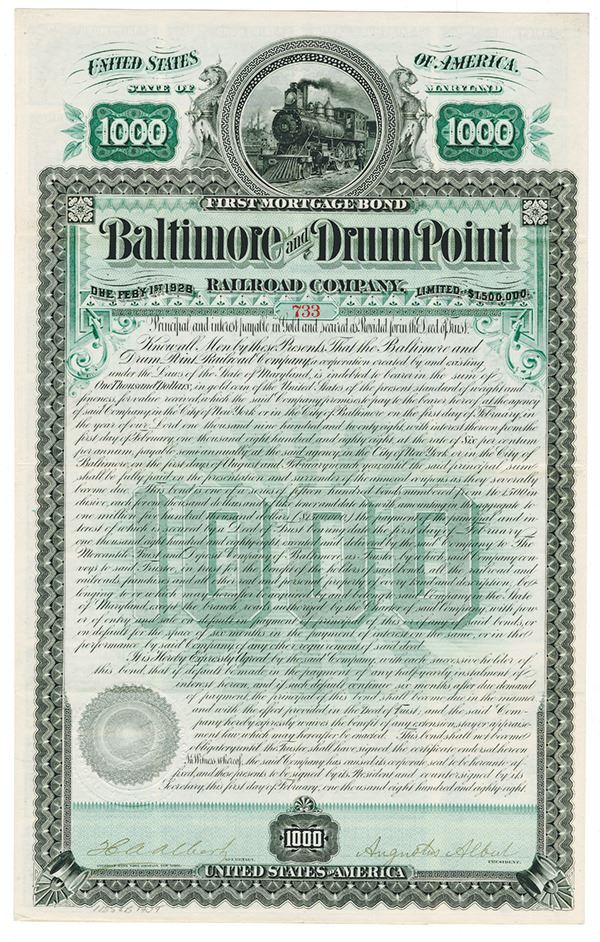 UNITED STATES OF AMERICA.
STATE OF MARYLAND
1000 1000
FIRST MORTGAGE BOND
Baltimore and Drum Point
RAILROAD COMPANY.
DUE FEBY 1ST 1928. LIMITED TO $1,500,000.
733
Principal and interest payable in Gold and secured as Provided for in the Deed of Trust.
Know all Men by these Presents, That the Baltimore and
Drum Point Railroad Company, a corporation created by and existing
under the Laws of the State of Maryland, is indebted to bearer in the sum of
One Thousand Dollars, in gold coin of the United States of the present standard of weight and
fineness, for value received, which the said Company promises to pay to the bearer hereof at the agency
of said Company, in the City of New York or in the City of Baltimore on the first day of February, in
the year of our Lord one thousand nine hundred and twenty eight, with interest thereon from the
first day of February, one thousand eight hundred and eighty eight, at the rate of Six per centum
per annum, payable semi-annually at the said agency in the City of New York or in the City of
Baltimore, on the first days of August and February in each year until the said principal sum
shall be fully paid on the presentation and surrender of the annexed coupons as they severally
become due. This bond is one of a series of fifteen hundred bonds numbered from 1 to 1500 in
clusive, each for one thousand dollars and of this tenor and date to the amount in the aggregate to
one million five hundred thousand dollars ($1,500,000) the payment of the principal and in
terest of which is secured by a Deed of Trust bearing date the first day of February
one thousand eight hundred and eighty eight executed and delivered by the said Company to The
Mercantile Trust and Deposit Company of Baltimore as Trustee, whereby the said Company con
veys to said Trustee, in trust for the benefit of the holders of said bonds all the railroad and
railroads, franchises and all other real and personal property of every kind and description, be
longing to or to be acquired by the said Company in the State
of Maryland, with pow
er of entry and sale on default in payment of the principal of this or any of said bonds, or
on default for the space of six months in the payment of interest on the same, or in the
performance by said Company of any other requirement of said deed.
It is Hereby Expressly Agreed by the said Company, with each successive holder of
this bond, that if default be made in the payment of any half-yearly instalment of
interest hereon, and if such default continue six months after due demand
of payment, the principal of this bond shall become due in the manner
and with the effect provided in the Deed of Trust, and the said Com-
pany hereby expressly waives the benefit of any extension, stay or appraise
ment law which may hereafter be enacted. This bond shall not become
obligatory until the Trustee shall have signed the certificate endorsed hereon.
In Witness whereof, the said Company has caused its corporate seal to be hereunto af
fixed, and these presents to be signed by its President and countersigned by its
Secretary, this first day of February, one thousand eight hundred and eighty eight.
1000
1000
H. A. Albert Augustus Albert
SECRETARY. PRESIDENT.
UNITED STATES OF AMERICA